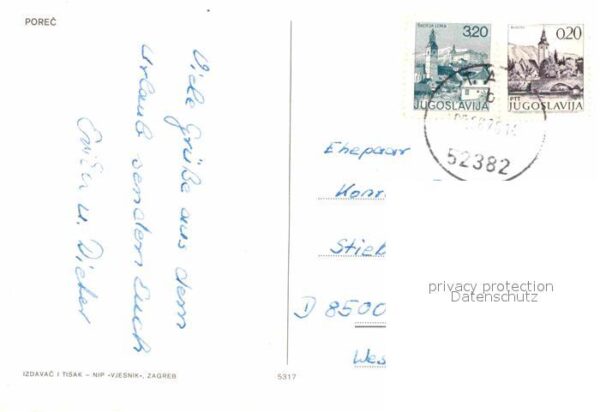 POREČ
Viele Grüße aus dem
Urlaub senden Euch
u. Dieter
ŠKOFJA LOKA
3,20
JUGOSLAVIJA
0,20
PTT JUGOSLAVIJA
52382
Ehepaar
Konr
Stie
D 8500
Wes
privacy protection
Datenschutz
IZDAVAČ I TISAK – NIP »VJESNIK«, ZAGREB
5317